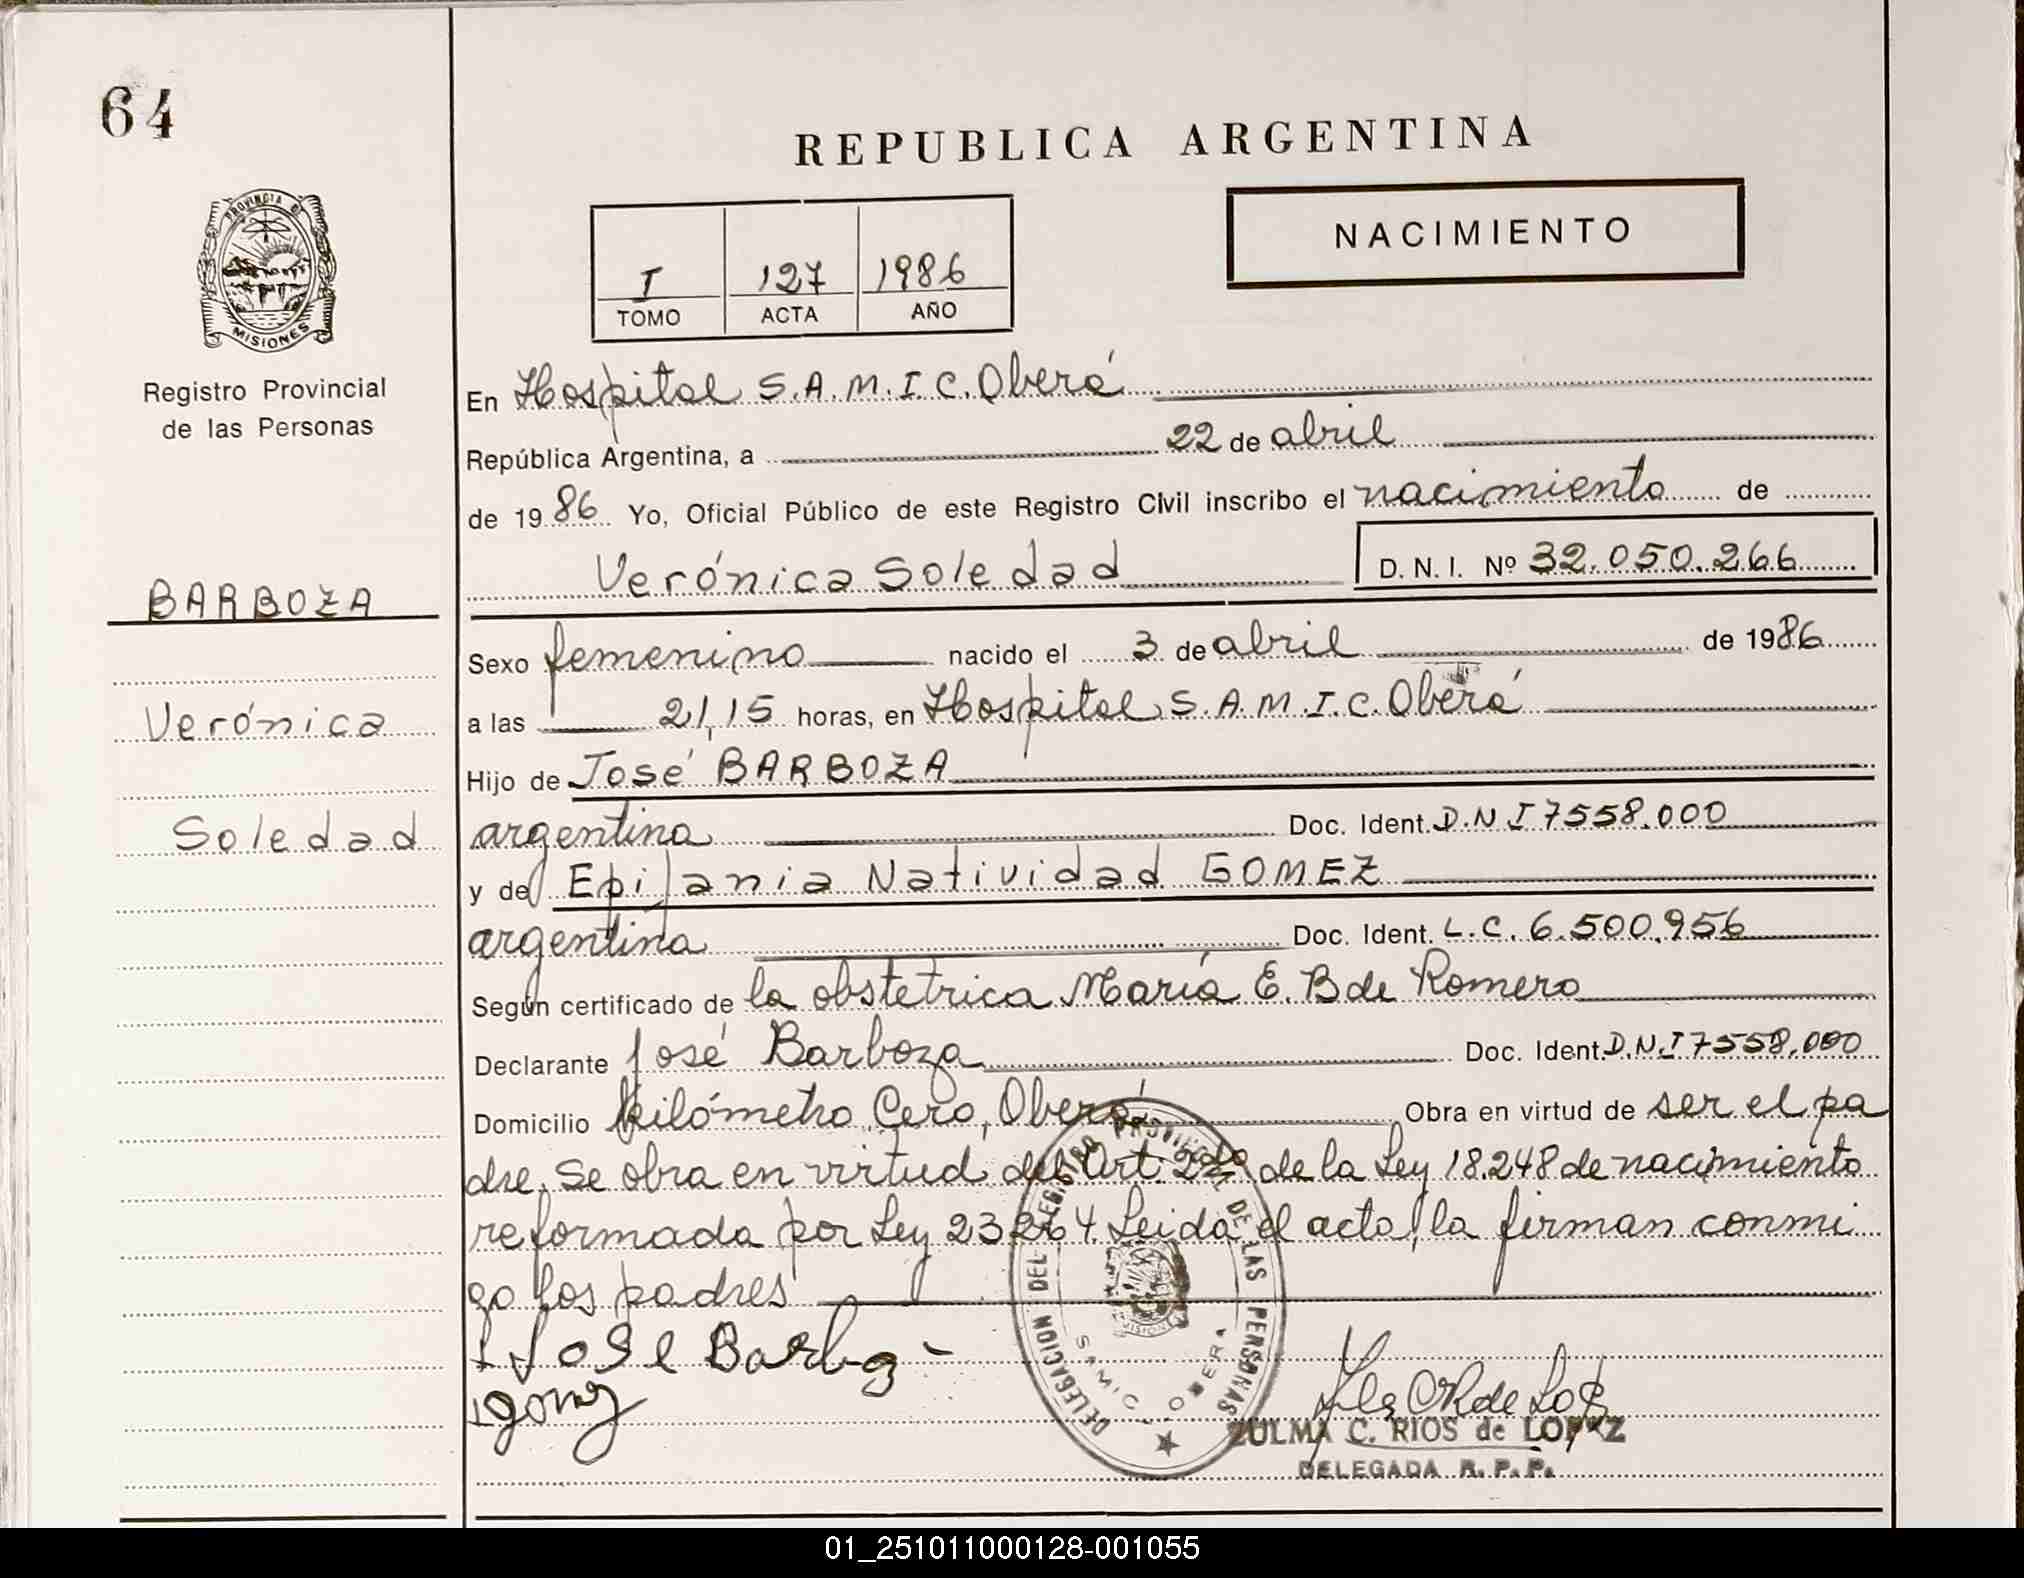 64
REPUBLICA ARGENTINA
PROVINCIA DE
MISIONES
Registro Provincial
de las Personas
NACIMIENTO
I 127 1986
TOMO ACTA AÑO
En Hospital S.A.M.I.C. Oberá
República Argentina, a 22 de abril
de 1986 Yo, Oficial Público de este Registro Civil inscribo el nacimiento de
Verónica Soledad D. N. I. Nº 32.050.266
BARBOZA
Verónica
Soledad
Sexo femenino nacido el 3 de abril de 1986
a las 21,15 horas, en Hospital S.A.M.I.C. Oberá
Hijo de José BARBOZA
argentina Doc. Ident. D.N.I 7558.000
y de Epifania Natividad GOMEZ
argentina Doc. Ident. L.C. 6.500.956
Según certificado de la obstetrica María E. B de Romero
Declarante José Barboza Doc. Ident. D.N.I 7558.000
Domicilio kilómetro Cero, Oberá Obra en virtud de ser el pa
dre. Se obra en virtud del Art. 2do de la Ley 18.248 de nacimiento
reformada por Ley 23264. Leida el acta, la firman conmi
go los padres
Jose Barboza
gomez
DELEGACION DEL REGISTRO PROVINCIAL DE LAS PERSONAS
MISIONES
SAMIC - OBERA
ZULMA C. RIOS de LOPEZ
DELEGADA R. P. P.
01_251011000128-001055